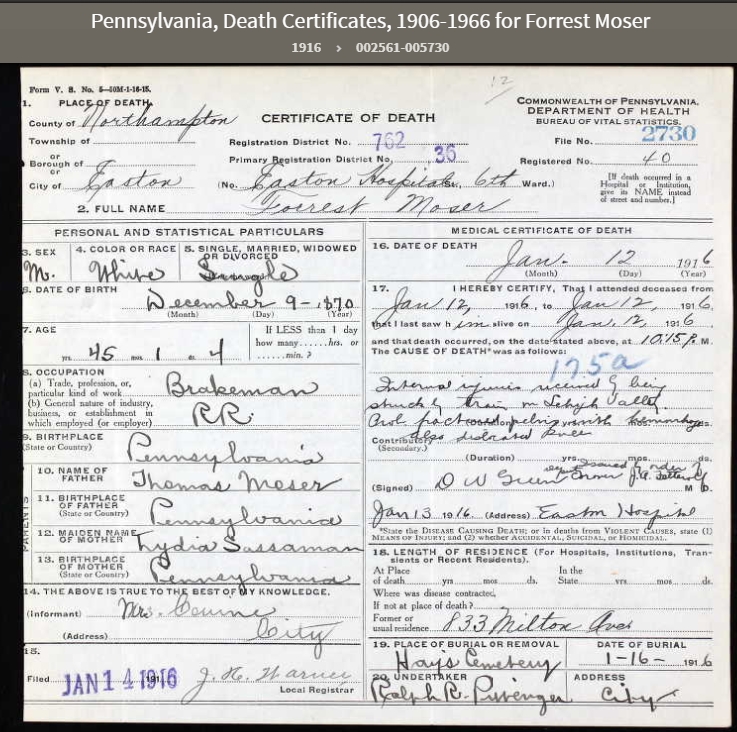 Pennsylvania, Death Certificates, 1906-1966 for Forrest Moser
1916 › 002561-005730
Form V. S. No. 5—50M-1-16-15.
12
1. PLACE OF DEATH.
County of Northampton
Township of
or
Borough of
or
City of Easton
CERTIFICATE OF DEATH
Registration District No. 762
Primary Registration District No. 36
(No. Easton Hospital St., 6th Ward.)
COMMONWEALTH OF PENNSYLVANIA.
DEPARTMENT OF HEALTH
BUREAU OF VITAL STATISTICS.
File No. 2730
Registered No. 40
[If death occurred in a
Hospital or Institution,
give its NAME instead
of street and number.]
2. FULL NAME Forrest Moser
PERSONAL AND STATISTICAL PARTICULARS
3. SEX
M.
4. COLOR OR RACE
White
5. SINGLE, MARRIED, WIDOWED
OR DIVORCED
Single
6. DATE OF BIRTH
December 9 - 1870
(Month) (Day) (Year)
7. AGE
45 yrs. 1 mos. 4
If LESS than 1 day
how many......hrs. or
......min.?
8. OCCUPATION
(a) Trade, profession, or
particular kind of work Brakeman
(b) General nature of industry,
business, or establishment in
which employed (or employer) RR.
9. BIRTHPLACE
(State or Country) Pennsylvania
PARENTS
10. NAME OF
FATHER Thomas Moser
11. BIRTHPLACE
OF FATHER
(State or Country) Pennsylvania
12. MAIDEN NAME
OF MOTHER Lydia Sassaman
13. BIRTHPLACE
OF MOTHER
(State or Country) Pennsylvania
14. THE ABOVE IS TRUE TO THE BEST OF MY KNOWLEDGE.
(Informant) Mrs.
(Address) City
15.
Filed JAN 14 1916 191 J. H.
Local Registrar
MEDICAL CERTIFICATE OF DEATH
16. DATE OF DEATH
Jan. 12 1916
(Month) (Day) (Year)
17. I HEREBY CERTIFY, That I attended deceased from
Jan 12, 1916, to Jan 12, 1916,
that I last saw him alive on Jan. 12, 1916,
and that death occurred, on the date stated above, at 10:15 P. M.
The CAUSE OF DEATH* was as follows:
175a
Internal injuries received by being
struck by train on Lehigh Valley.
fractured pelvis with hemorrhage
(Duration) yrs. mos. ds.
Contributory also
(Secondary.)
(Duration) yrs. mos. ds.
(Signed) D W Green M. D.
Jan 13 1916 (Address) Easton Hospital
*State the DISEASE CAUSING DEATH; or in deaths from VIOLENT CAUSES, state (1)
MEANS OF INJURY; and (2) whether ACCIDENTAL, SUICIDAL, or HOMICIDAL.
18. LENGTH OF RESIDENCE (For Hospitals, Institutions, Tran-
sients or Recent Residents).
At Place In the
of death yrs mos ds. State yrs mos. ds.
Where was disease contracted,
If not at place of death?
Former or
usual residence 833 Milton Ave
19. PLACE OF BURIAL OR REMOVAL
Hay's Cemetery
DATE OF BURIAL
1-16- 1916
20. UNDERTAKER
Ralph R.
ADDRESS
City